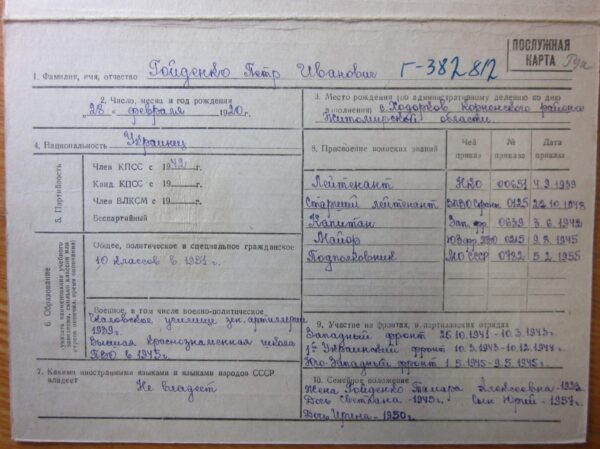 ПОСЛУЖНАЯ
КАРТА
1. Фамилия, имя, отчество Гойденко Петр Иванович Г-382812
2. Число, месяц и год рождения
"28" февраля 1920г.
3. Место рождения (по административному делению ко дню
заполнения) с. Ходорков Корнинского района
Житомирской области.
4. Национальность Украинец
5. Партийность
Член КПСС с 1942г.
Канд. КПСС с 19г.
Член ВЛКСМ с 19г.
Беспартийный
8. Присвоение воинских званий
Чей приказ
№ приказа
Дата приказа
Лейтенант НКО 00651 4.9.1939
Старший лейтенант 0125 22.10.1942
Капитан Зап. фр. 0639 3.6.1942
Майор ПВО 0215 9.3.1945
Подполковник МО СССР 0782 5.2.1955
6. Образование
указать наименование учебного
заведения, сколько классов или
Общее, политическое и специальное гражданское
10 классов в 1951г.
Военное, в том числе военно-политическое
училище зен. артиллерии
1939г.
Высшая краснознаменная школа
ПВО в 1945г.
9. Участие на фронтах, в партизанских отрядах
Западный фронт 26.10.1941-10.3.1943г.
1й Украинский фронт 10.3.1943-10.12.1944г.
Юго-Западный фронт 1.1.1945-9.5.1945г.
7. Какими иностранными языками и языками народов СССР
владеет Не владеет
10. Семейное положение
Жена Гойденко Тамара Алексеевна-
Дочь Светлана-1945г. Сын Юрий-1957г.
Дочь Ирина-1950г.